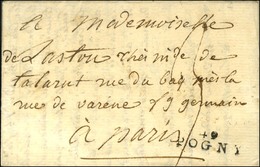 A Mademoiselle
de Lastou chés mde de
talarut rue du baq près la
rue de varéne f g germain
à paris
49
JOGNY